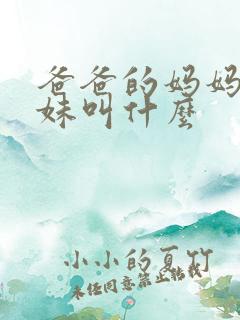 爸爸的妈妈
妹叫什麽
小小的夏竹
未经同意禁止转载